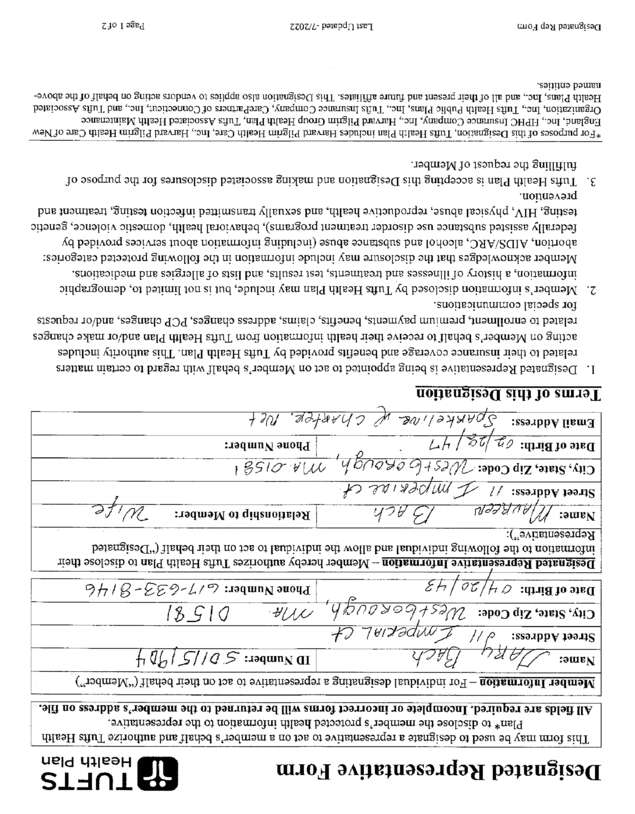 Designated Representative Form
TUFTS
Health Plan
This form may be used to designate a representative to act on a member's behalf and authorize Tufts Health
Plan* to disclose the member's protected health information to the representative.
All fields are required. Incomplete or incorrect forms will be returned to the member's address on file.
Member Information – For individual designating a representative to act on their behalf ("Member")
Name: Bach ID Number: S01151964
Street Address: 11 Imperial Ct
City, State, Zip Code: Westborough, MA 01581
Date of Birth: 04/20/43 Phone Number: 617-633-8146
Designated Representative Information – Member hereby authorizes Tufts Health Plan to disclose their
information to the following individual and allow the individual to act on their behalf ("Designated
Representative"):
Name: Maureen Bach Relationship to Member: Wife
Street Address: 11 Imperial Ct
City, State, Zip Code: Westborough, MA 01581
Date of Birth: 02/28/47 Phone Number:
Email Address: @ charter.net
Terms of this Designation
1. Designated Representative is being appointed to act on Member's behalf with regard to certain matters
related to their insurance coverage and benefits provided by Tufts Health Plan. This authority includes
acting on Member's behalf to receive their health information from Tufts Health Plan and/or make changes
related to enrollment, premium payments, benefits, claims, address changes, PCP changes, and/or requests
for special communications.
2. Member's information disclosed by Tufts Health Plan may include, but is not limited to, demographic
information, a history of illnesses and treatments, test results, and lists of allergies and medications.
Member acknowledges that the disclosure may include information in the following protected categories:
abortion, AIDS/ARC, alcohol and substance abuse (including information about services provided by
federally assisted substance use disorder treatment programs), behavioral health, domestic violence, genetic
testing, HIV, physical abuse, reproductive health, and sexually transmitted infection testing, treatment and
prevention.
3. Tufts Health Plan is accepting this Designation and making associated disclosures for the purpose of
fulfilling the request of Member.
*For purposes of this Designation, Tufts Health Plan includes Harvard Pilgrim Health Care, Inc., Harvard Pilgrim Health Care of New
England, Inc., HPHC Insurance Company, Inc., Harvard Pilgrim Group Health Plan, Tufts Associated Health Maintenance
Organization, Inc., Tufts Health Public Plans, Inc., Tufts Insurance Company, CarePartners of Connecticut, Inc., and Tufts Associated
Health Plans, Inc., and all of their present and future affiliates. This Designation also applies to vendors acting on behalf of the above-
named entities.
Designated Rep Form Last Updated -7/2022 Page 1 of 2